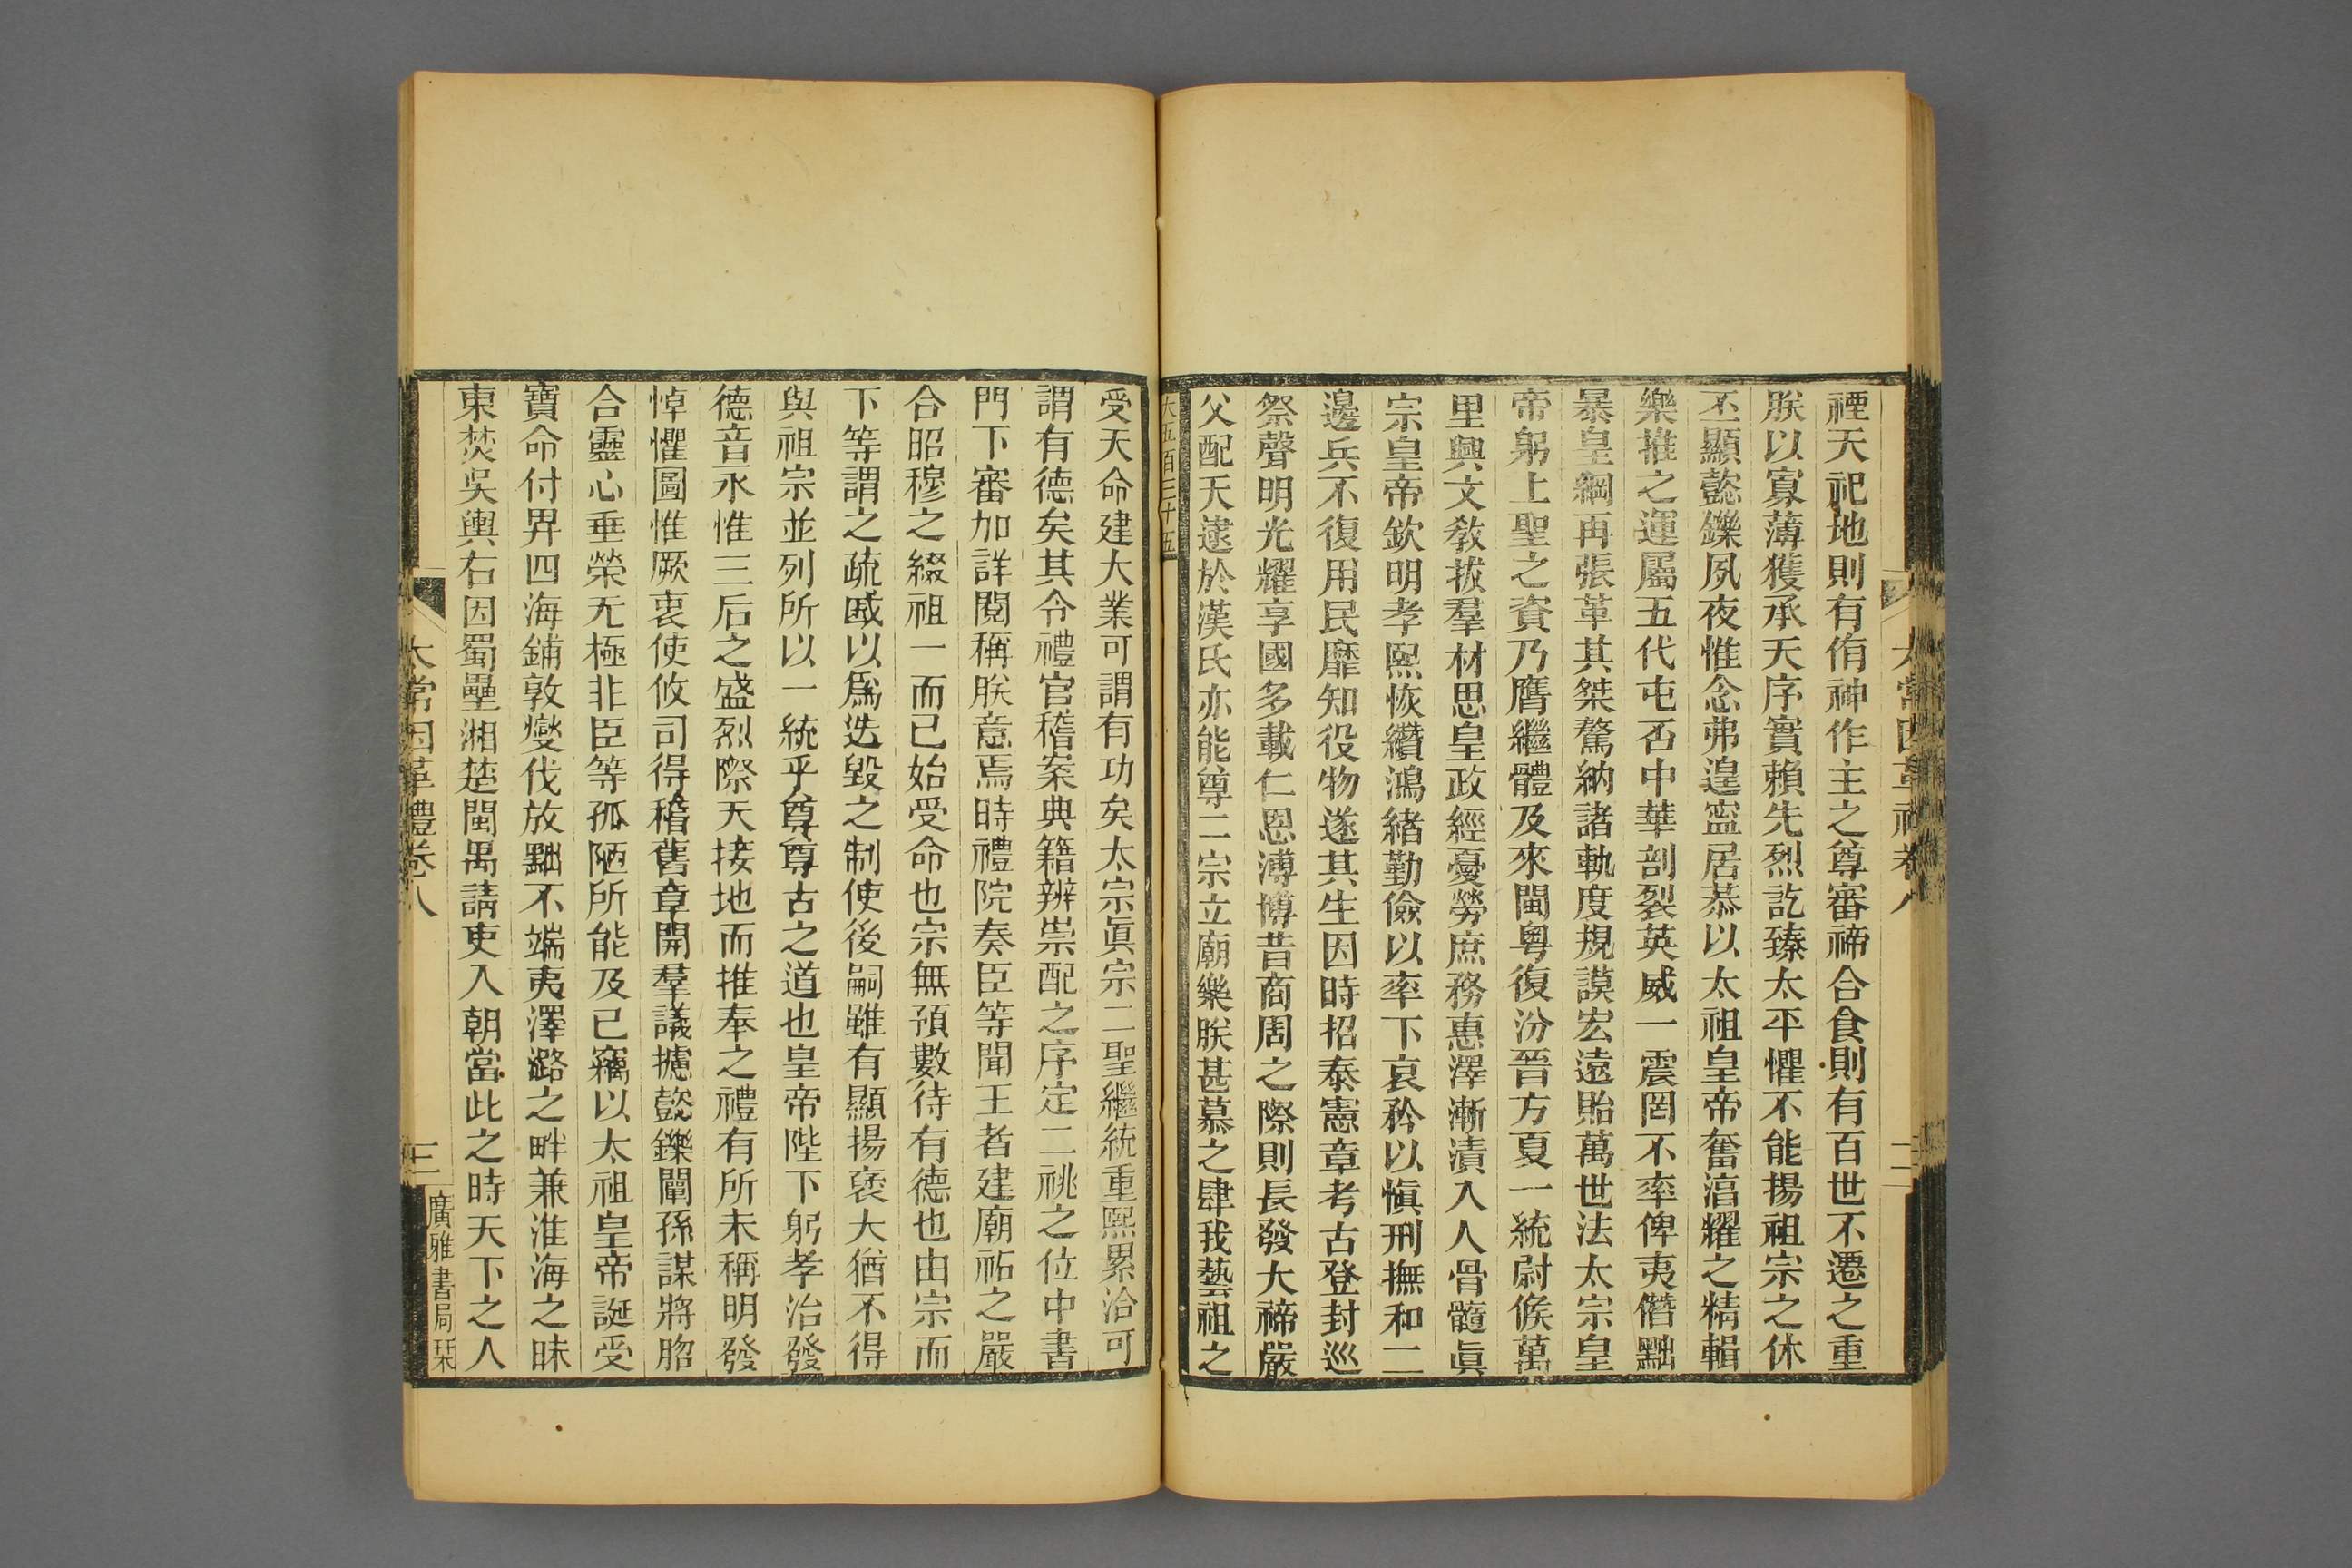 太常因革禮卷八
二
禋天祀地則有侑神作主之尊審禘合食則有百世不遷之重
朕以寡薄獲承天序實賴先烈訖臻太平懼不能揚祖宗之休
丕顯懿鑠夙夜惟念弗遑寍居恭以太祖皇帝奮渰耀之精輯
樂推之運屬五代屯否中華剖裂英威一震罔不率俾夷僭黜
暴皇綱再張革其桀驁納諸軌度規謨宏遠貽萬世法太宗皇
帝躬上聖之資乃膺繼體及來閩粤復汾晉方夏一統尉候萬
里興文敎拔羣材思皇政經憂勞庶務惠澤漸漬入人骨髓眞
宗皇帝欽明孝熙恢纘鴻緒勤儉以率下哀矜以愼刑撫和二
邊兵不復用民靡知役物遂其生因時招泰憲章考古登封巡
祭聲明光耀享國多載仁恩溥博昔商周之際則長發大禘嚴
父配天逮於漢氏亦能尊二宗立廟樂朕甚慕之肆我藝祖之
大五百三十五
受天命建大業可謂有功矣太宗眞宗二聖繼統重熙累洽可
謂有德矣其令禮官稽案典籍辨崇配之序定二祧之位中書
門下審加詳閱稱朕意焉時禮院奏臣等聞王者建廟祏之嚴
合昭穆之綴祖一而已始受命也宗無預數待有德也由宗而
下等謂之疏戚以爲迭毀之制使後嗣雖有顯揚褒大猶不得
與祖宗並列所以一統乎尊尊古之道也皇帝陛下躬孝治發
德音永惟三后之盛烈際天接地而推奉之禮有所未稱明發
悼懼圖惟厥衷使攸司得稽舊章開羣議攄懿鑠闡孫謀將脗
合靈心垂榮无極非臣等孤陋所能及已竊以太祖皇帝誕受
寶命付畀四海鋪敦燮伐放黜不端夷澤潞之畔兼淮海之昧
東焚吳輿右因蜀壘湘楚閩禺請吏入朝當此之時天下之人
太常因革禮卷八
三
廣雅書局栞